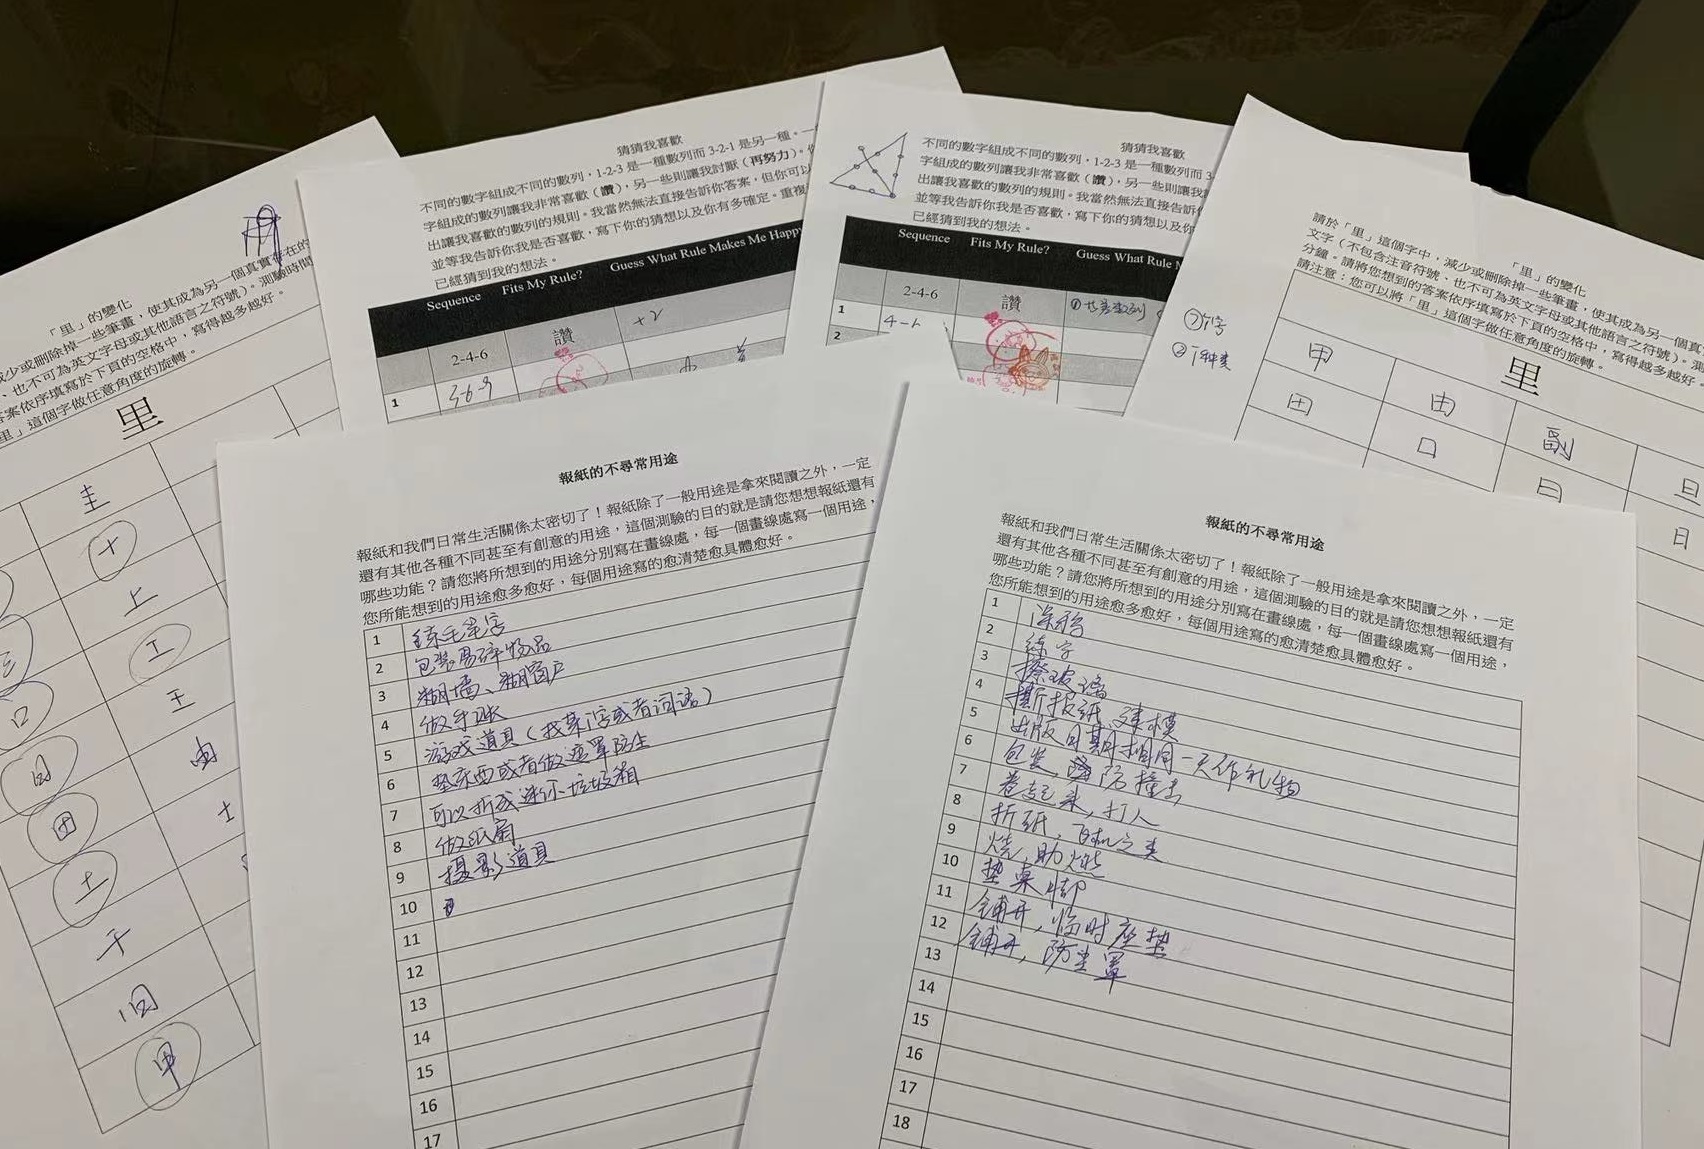 「里」的變化
減少或刪除掉一些筆畫，使其成為另一個真實存在的
、也不可為英文字母或其他語言之符號）。測驗時間
答案依序填寫於下頁的空格中，寫得越多越好。
里」這個字做任意角度的旋轉。
里
圭
十
上
工
王
由
土
口
田
士
干
甲
猜猜我喜歡
不同的數字組成不同的數列，1-2-3 是一種數列而 3-2-1 是另一種。一
字組成的數列讓我非常喜歡（讚），另一些則讓我討厭（再努力）。
出讓我喜歡的數列的規則。我當然無法直接告訴你答案，但你可以
並等我告訴你我是否喜歡，寫下你的猜想以及你有多確定。重複
已經猜到我的想法。
Sequence Fits My Rule? Guess What Rule Makes Me Happy
2-4-6 讚 +2
1 3-6-9
猜猜我喜歡
不同的數字組成不同的數列，1-2-3 是一種數列而 3-
字組成的數列讓我非常喜歡（讚），另一些則讓我
出讓我喜歡的數列的規則。我當然無法直接告訴
並等我告訴你我是否喜歡，寫下你的猜想以及你
已經猜到我的想法。
Sequence Fits My Rule? Guess What Rule M
2-4-6 讚
1
2
「里」的變化
請於「里」這個字中，減少或刪除掉一些筆畫，使其成為另一個真
文字（不包含注音符號，也不可為英文字母或其他語言之符號）。測
分鐘。請將您想到的答案依序填寫於下頁的空格中，寫得越多越好。
請注意：您可以將「里」這個字做任意角度的旋轉。
里
甲 由 副 旦
田 口 日 日
報紙的不尋常用途
報紙和我們日常生活關係太密切了！報紙除了一般用途是拿來閱讀之外，一定
還有其他各種不同甚至有創意的用途，這個測驗的目的就是請您想想報紙還有
哪些功能？請您將所想到的用途分別寫在畫線處，每一個畫線處寫一個用途，
您所能想到的用途愈多愈好，每個用途寫的愈清楚愈具體愈好。
1 练毛笔字
2 包装易碎物品
3 糊墙、糊窗户
4 做手账
5 游戏道具（找某字或者词语）
6 垫东西或者做遮罩防尘
7 可以折成迷你垃圾箱
8 做纸扇
9 摄影道具
10
11
12
13
14
15
16
17
報紙的不尋常用途
報紙和我們日常生活關係太密切了！報紙除了一般用途是拿來閱讀之外，一定
還有其他各種不同甚至有創意的用途，這個測驗的目的就是請您想想報紙還有
哪些功能？請您將所想到的用途分別寫在畫線處，每一個畫線處寫一個用途，
您所能想到的用途愈多愈好，每個用途寫的愈清楚愈具體愈好。
1
2 练字
3 擦玻璃
4 撕报纸，建模
5 出版日期相同一天作礼物
6 包装，防撞击
7 卷起来，打人
8 折纸，飞机之类
9 烧，助燃
10 垫桌脚
11 铺开，临时座垫
12 铺开，防尘罩
13
14
15
16
17
18